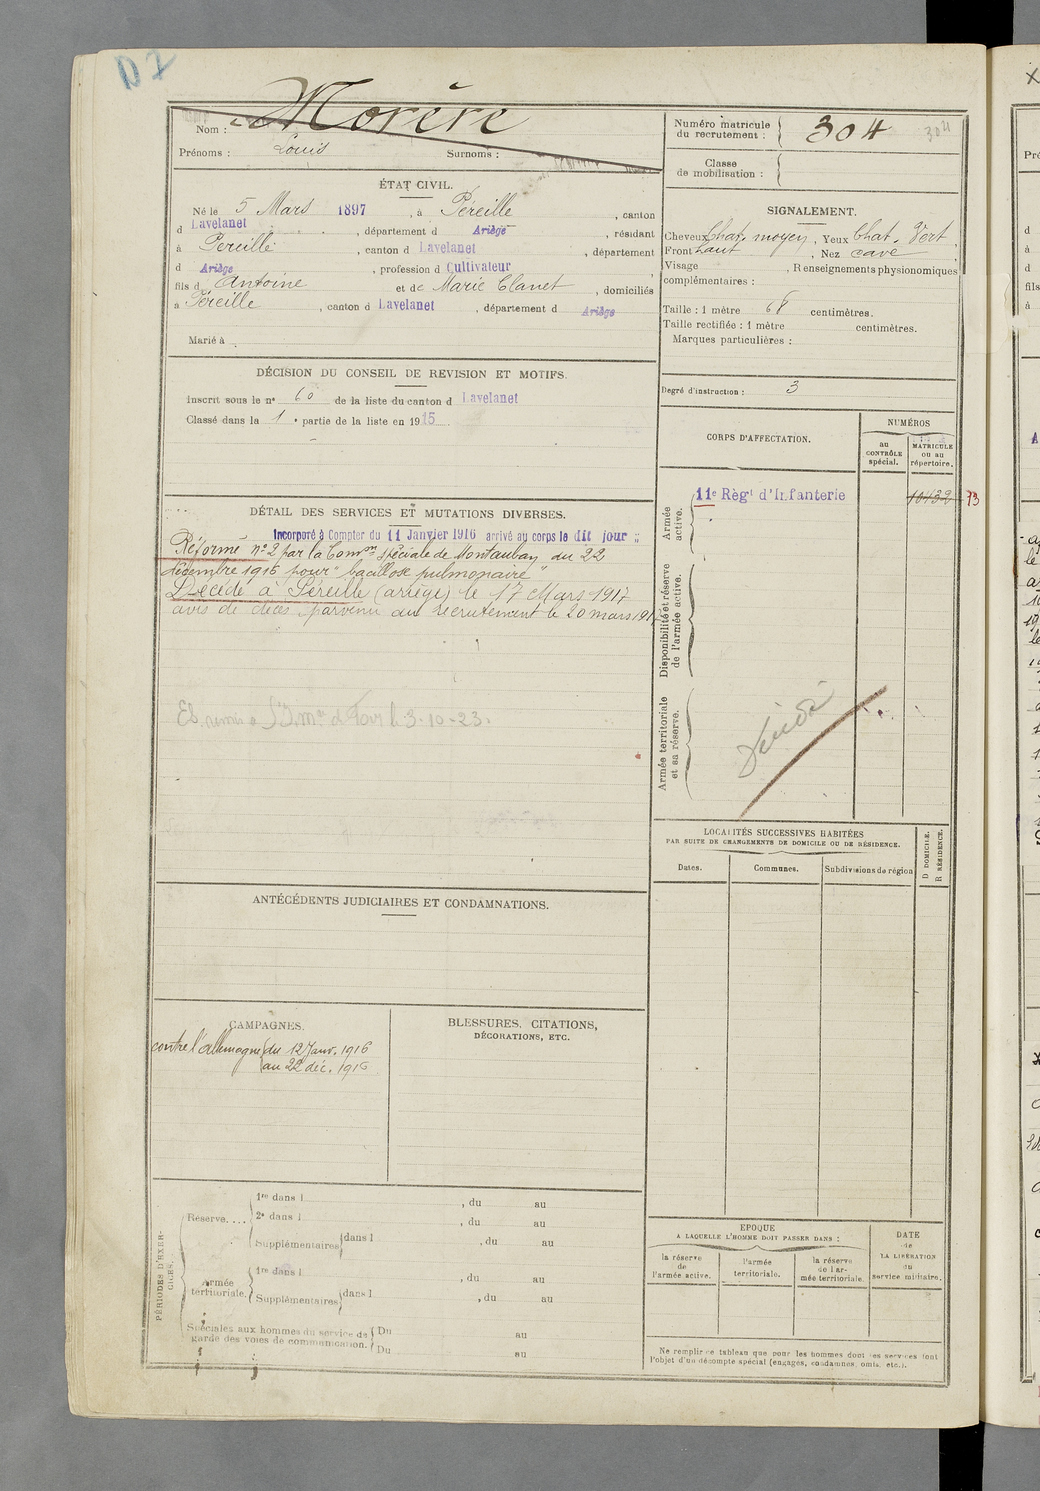 D2
Nom : Morère
Prénoms : Louis Surnoms :
Numéro matricule du recrutement : 304 304
Classe de mobilisation :
ÉTAT CIVIL.
Né le 5 Mars 1897, à Péreille, canton
d Lavelanet, département d Ariège, résidant
à Péreille, canton d Lavelanet, département
d Ariège, profession d Cultivateur
fils d Antoine et de Marie Clanet, domiciliés
à Péreille, canton d Lavelanet, département d Ariège
Marié à
SIGNALEMENT.
Cheveux Chat. moyen, Yeux Chat. Vert,
Front haut, Nez cave
Visage, Renseignements physionomiques
complémentaires :
Taille : 1 mètre 68 centimètres.
Taille rectifiée : 1 mètre centimètres.
Marques particulières :
Degré d'instruction : 3
DÉCISION DU CONSEIL DE REVISION ET MOTIFS.
Inscrit sous le n° 60 de la liste du canton d Lavelanet
Classé dans la 1e partie de la liste en 1915.
CORPS D'AFFECTATION.
NUMÉROS
au CONTRÔLE spécial.
MATRICULE ou au répertoire.
Armée active.
11e Régt d'Infanterie 10432 73
Disponibilité et réserve de l'armée active.
Armée territoriale et sa réserve.
DÉTAIL DES SERVICES ET MUTATIONS DIVERSES.
Incorporé à Compter du 11 Janvier 1916 arrivé au corps le dit jour
Réformé n° 2 par la Comm on spéciale de Montauban du 22
décembre 1916 pour "bacillose pulmonaire"
Décédé à Péreille (ariège) le 17 Mars 1917
avis de décès parvenu au recrutement le 20 mars 1917
3-10-23.
LOCALITÉS SUCCESSIVES HABITÉES
PAR SUITE DE CHANGEMENTS DE DOMICILE OU DE RÉSIDENCE.
Dates. Communes. Subdivisions de région D DOMICILE. R RÉSIDENCE.
ANTÉCÉDENTS JUDICIAIRES ET CONDAMNATIONS.
CAMPAGNES.
contre l'allemagne du 12 Janv. 1916
au 22 déc. 1916
BLESSURES, CITATIONS,
DÉCORATIONS, ETC.
PÉRIODES D'EXERCICES.
Réserve....
1re dans l, du au
2e dans l, du au
Supplémentaires dans l, du au
Armée territoriale.
1re dans l, du au
Supplémentaires dans l, du au
Spéciales aux hommes du service de garde des voies de communication.
Du au
Du au
EPOQUE
A LAQUELLE L'HOMME DOIT PASSER DANS :
la réserve de l'armée active.
l'armée territoriale.
la réserve de l'armée territoriale.
DATE de LA LIBÉRATION du service militaire.
Ne remplir ce tableau que pour les hommes dont les services font
l'objet d'un décompte spécial (engagés, condamnés, omis, etc.).